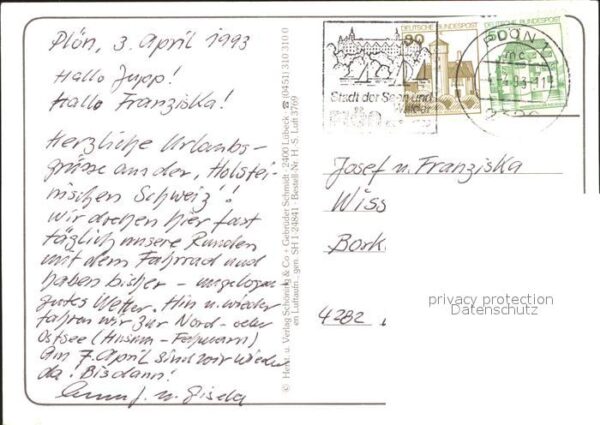 Plön, 3. April 1993
Hallo Jupp!
Hallo Franziska!
Herzliche Urlaubs-
grüsse aus der "Holstei-
nischen Schweiz"!
Wir drehen hier fast
täglich unsere Runden
mit dem Fahrrad und
haben bisher - ungelogen
gutes Wetter. Hin u. wieder
fahren wir zur Nord- oder
Ostsee (Husum - Fehmarn)
Am 7. April sind wir wieder
da! Bis dann!
u. Gisela
© Herst. u. Verlag Schöning & Co + Gebrüder Schmidt · 2400 Lübeck · ☎ (0451) 31 03 10
en Luftaufn. gen. SH 1-24841 · Bestell-Nr. H. S. Luft 3769
Stadt der Seen und
80
DEUTSCHE BUNDESPOST
DEUTSCHE BUNDESPOST
PLÖN
Josef u. Franziska
Wiss
Bork
4282
privacy protection
Datenschutz